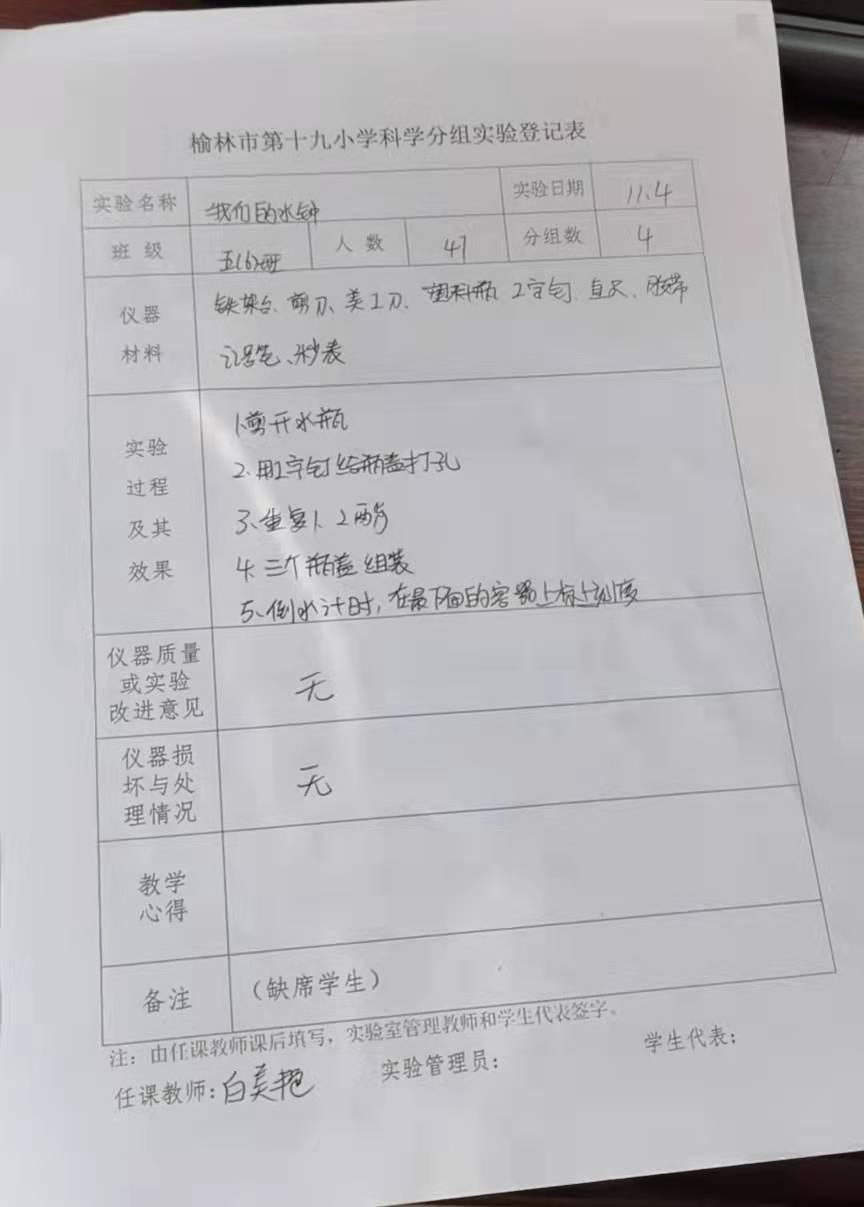 榆林市第十九小学科学分组实验登记表
实验名称 我们的水钟 实验日期 11.4
班 级 五(6)班 人 数 47 分组数 4
仪器
材料
铁架台、剪刀、美工刀、塑料瓶 工字钉、直尺、胶带
记号笔、秒表
实验
过程
及其
效果
1.剪开水瓶
2.用工字钉给瓶盖打孔
3、重复1、2两步
4.三个瓶盖组装
5、倒水计时，在最下面的容器上标上刻度
仪器质量
或实验
改进意见
无
仪器损
坏与处
理情况
无
教学
心得
备注 （缺席学生）
注：由任课教师课后填写，实验室管理教师和学生代表签字。
任课教师：白美艳 实验管理员： 学生代表：